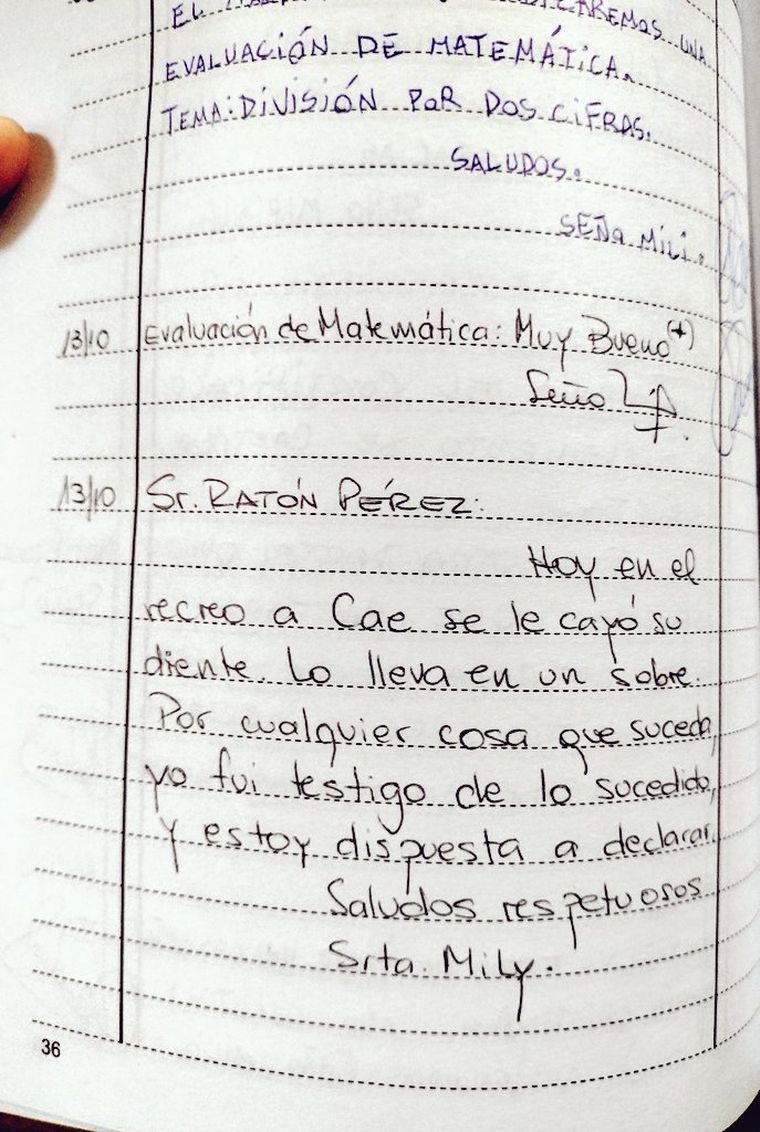 EL
EMOS UNA
EVALUACIÓN DE MATEMÁTICA.
TEMA: DIVISIÓN POR DOS CIFRAS.
SALUDOS.
SEÑO MILI.
13/10 Evaluación de Matemática: Muy Bueno (+)
Seño
13/10 Sr. RATÓN PÉREZ:
Hoy en el
recreo a Cae se le cayó su
diente. Lo lleva en un sobre.
Por cualquier cosa que suceda,
yo fui testigo de lo sucedido,
y estoy dispuesta a declarar.
Saludos respetuosos
Srta. Mily.
36